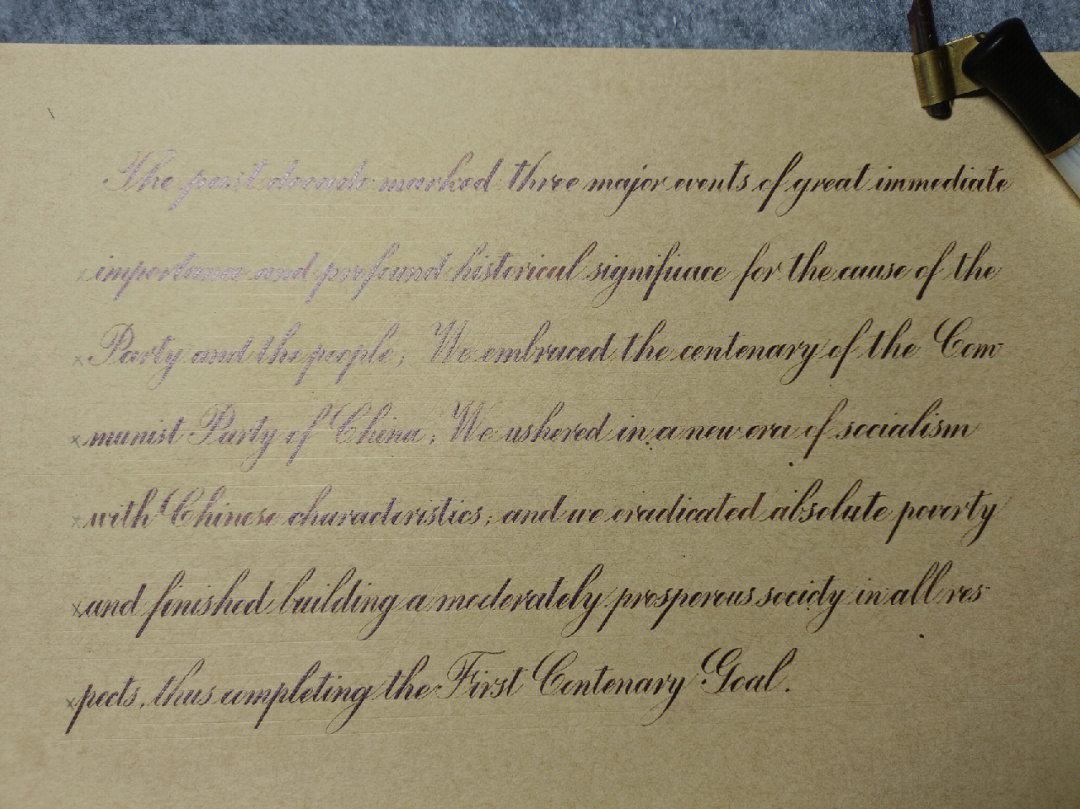 The past decade marked three major events of great immediate
importance and profound historical significace for the cause of the
Party and the people; We embraced the centenary of the Com-
munist Party of China; We ushered in a new era of socialism
with Chinese characteristics; and we eradicated absolute poverty
and finished building a moderately prosperous society in all res-
pects, thus completing the First Centenary Goal.